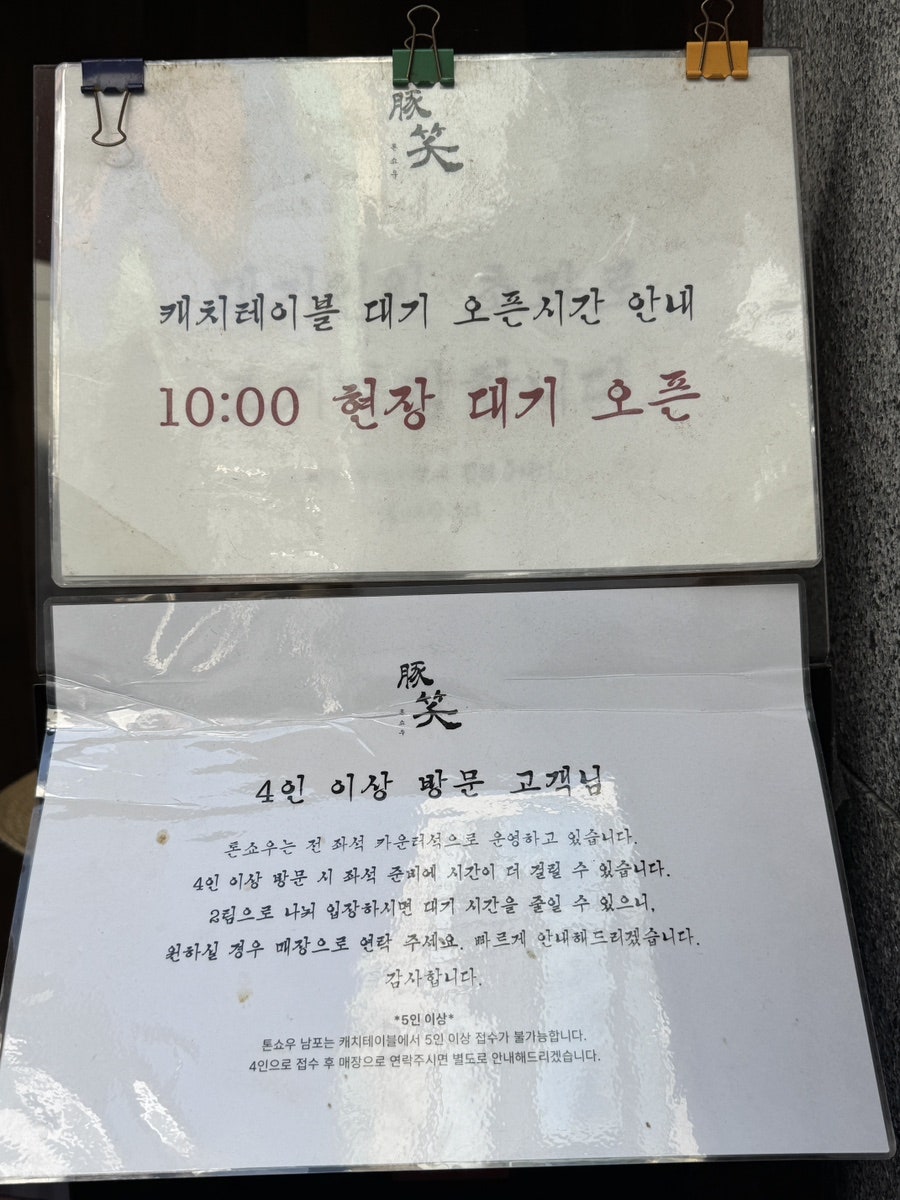 豚
笑
톤쇼우
캐치테이블 대기 오픈시간 안내
10:00 현장 대기 오픈
豚
笑
톤쇼우
4인 이상 방문 고객님
톤쇼우는 전 좌석 카운터석으로 운영하고 있습니다.
4인 이상 방문 시 좌석 준비에 시간이 더 걸릴 수 있습니다.
2팀으로 나눠 입장하시면 대기 시간을 줄일 수 있으니,
원하실 경우 매장으로 연락 주세요. 빠르게 안내해드리겠습니다.
감사합니다.
*5인 이상*
톤쇼우 남포는 캐치테이블에서 5인 이상 접수가 불가능합니다.
4인으로 접수 후 매장으로 연락주시면 별도로 안내해드리겠습니다.